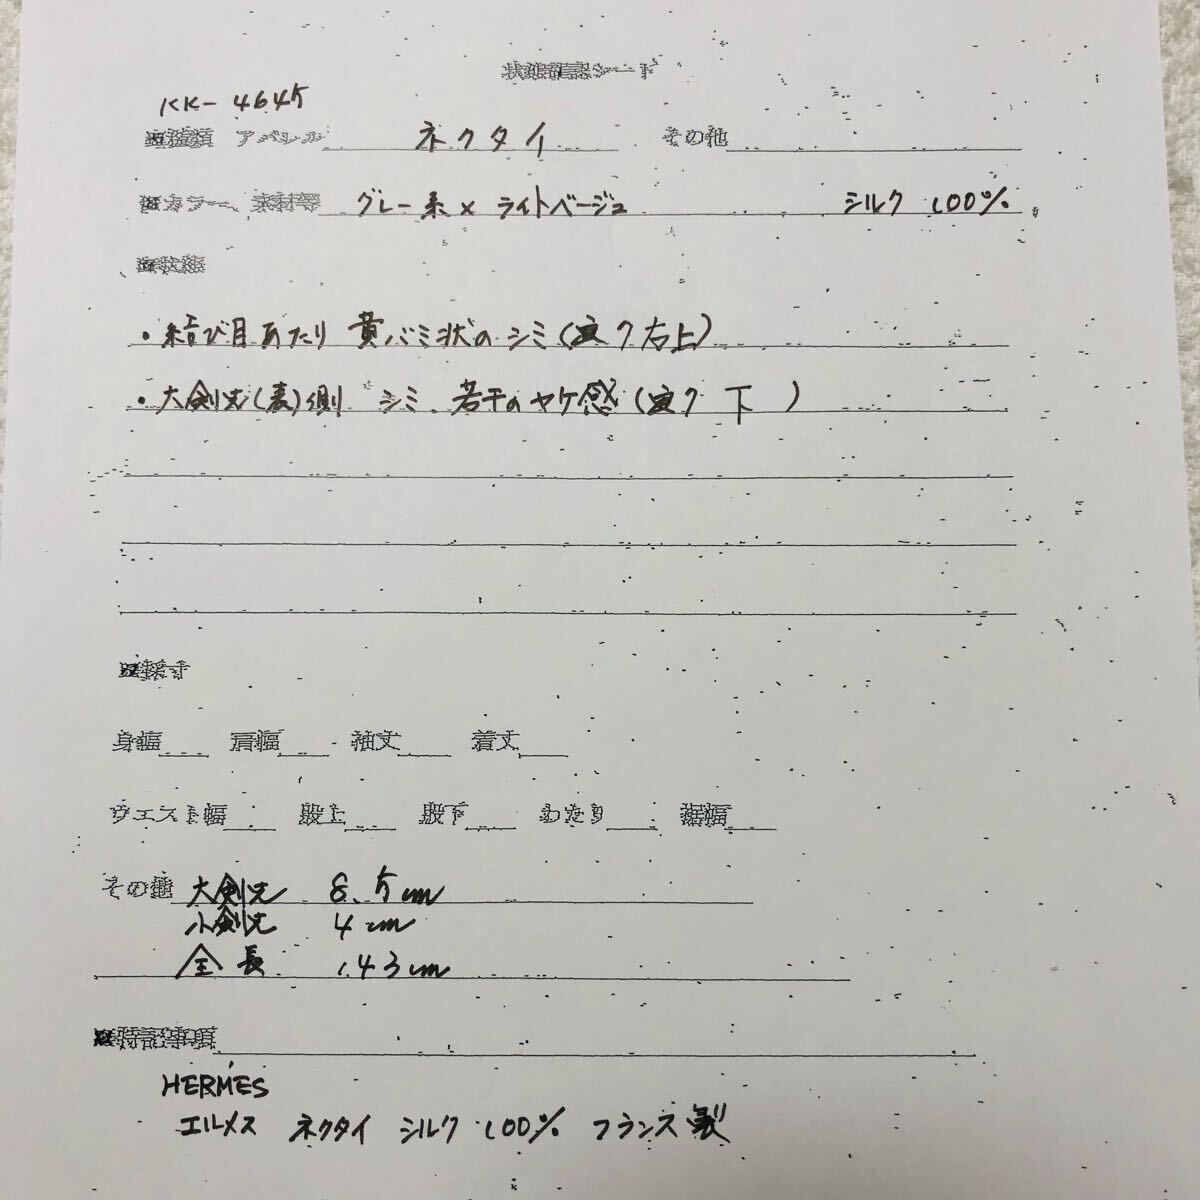 状態確認シート
KK-4645
種類 アパレル ネクタイ その他
カラー、素材等 グレー系×ライトベージュ シルク 100%
状態
・結び目あたり 黄バミ状のシミ(ヨク右上)
・大剣先(表)側 シミ、若干のヤケ感( 下 )
採寸
身幅 肩幅 袖丈 着丈
ウエスト幅 股上 股下 わたり 裾幅
その他 大剣先 8.5cm
小剣先 4cm
全長 143cm
特記事項
HERMES
エルメス ネクタイ シルク 100% フランス製